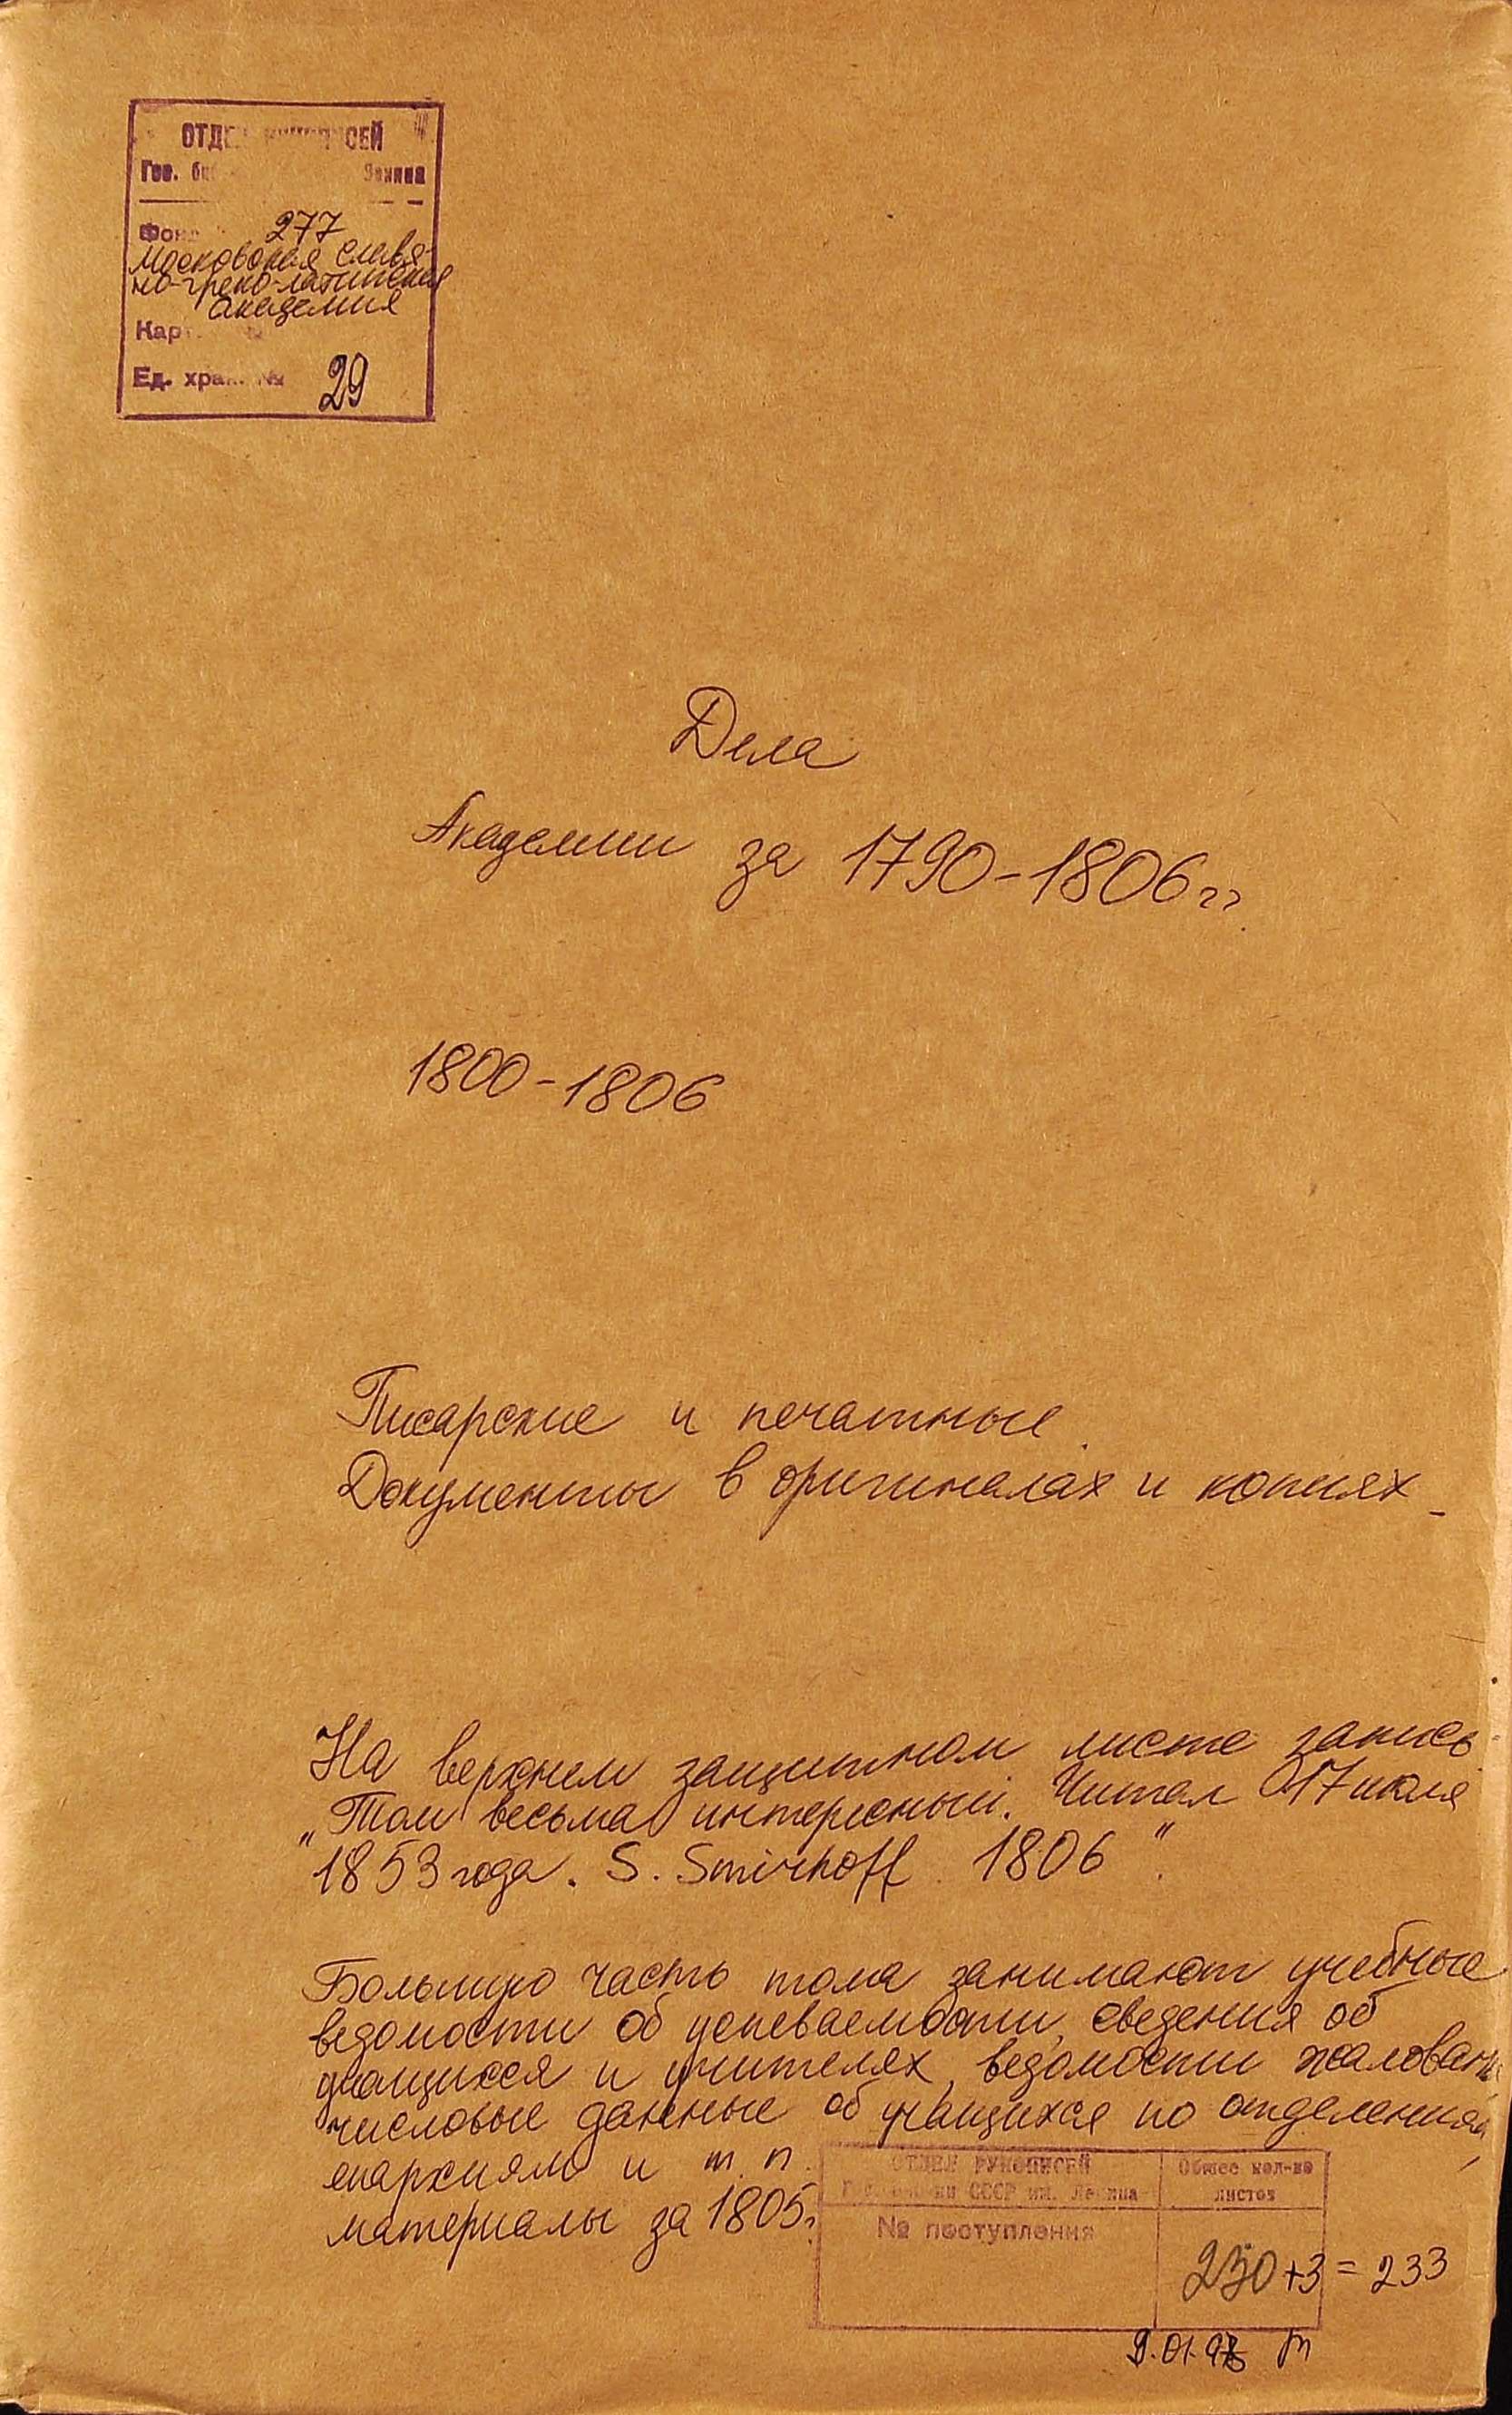 ОТДЕЛ РУКОПИСЕЙ
Гос.
Фонд 277
Московская славя-
но-греко-латинская
Академия
Карт. №
Ед. хран. № 29
Дела
Академии за 1790-1806 гг.
1800-1806
Писарские и печатные.
Документы в оригиналах и копиях.
На верхнем защитном листе запись
„Том весьма интересный. Читал 17 июля
1853 года. S. Smirnoff. 1806".
Большую часть тома занимают учебные
ведомости об успеваемости, сведения об
учащихся и учителях, ведомости жалования
числовые данные об учащихся по отделениям,
епархиям и т. п.
материалы за 1805г.
ОТДЕЛ РУКОПИСЕЙ
СССР им. Ленина
Общее кол-во
листов
№ поступления
230+3=233
9.01.